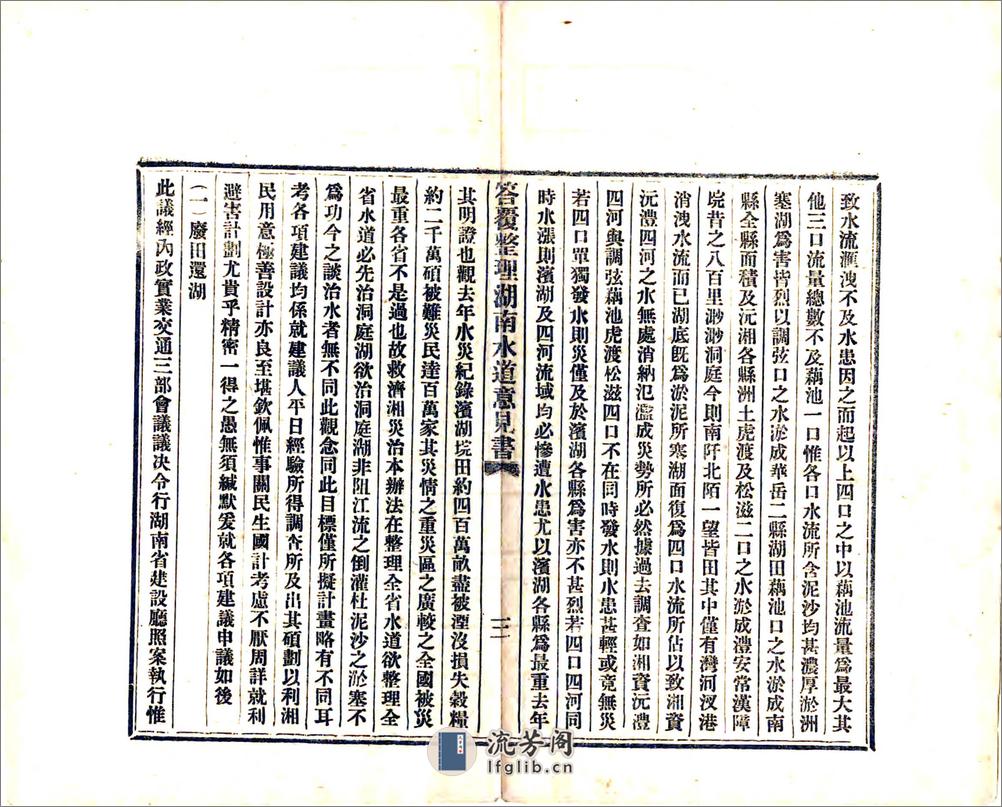 致水流滙洩不及水患因之而起以上四口之中以藕池流量爲最大其
他三口流量總數不及藕池一口惟各口水流所含泥沙均甚濃厚淤洲
塞湖爲害皆烈以調弦口之水淤成華岳二縣湖田藕池口之水淤成南
縣全縣面積及沅湘各縣洲土虎渡及松滋二口之水淤成澧安常漢障
垸昔之八百里渺渺洞庭今則南阡北陌一望皆田其中僅有灣河汊港
消洩水流而已湖底旣爲淤泥所寒湖面復爲四口水流所佔以致湘資
沅澧四河之水無處消納氾濫成災勢所必然據過去調查如湘資沅澧
四河與調弦藕池虎渡松滋四口不在同時發水則水患甚輕或竟無災
若四口單獨發水則災僅及於濱湖各縣爲害亦不甚烈若四口四河同
時水漲則濱湖及四河流域均必慘遭水患尤以濱湖各縣爲最重去年
答覆整理湖南水道意見書
三
其明證也觀去年水災紀錄濱湖垸田約四百萬畝盡被湮沒損失穀糧
約二千萬碩被難災民達百萬家其災情之重災區之廣較之全國被災
最重各省不是過也故救濟湘災治本辦法在整理全省水道欲整理全
省水道必先治洞庭湖欲治洞庭湖非阻江流之倒灌杜泥沙之淤塞不
爲功今之談治水者無不同此觀念同此目標僅所擬計畫略有不同耳
考各項建議均係就建議人平日經驗所得調查所及出其碩劃以利湘
民用意極善設計亦良至堪欽佩惟事關民生國計考慮不厭周詳就利
避害計劃尤貴乎精密一得之愚無須緘默爰就各項建議申議如後
（一）廢田還湖
此議經內政實業交通三部會議議决令行湖南省建設廳照案執行惟
流芳阁
lfglib.cn